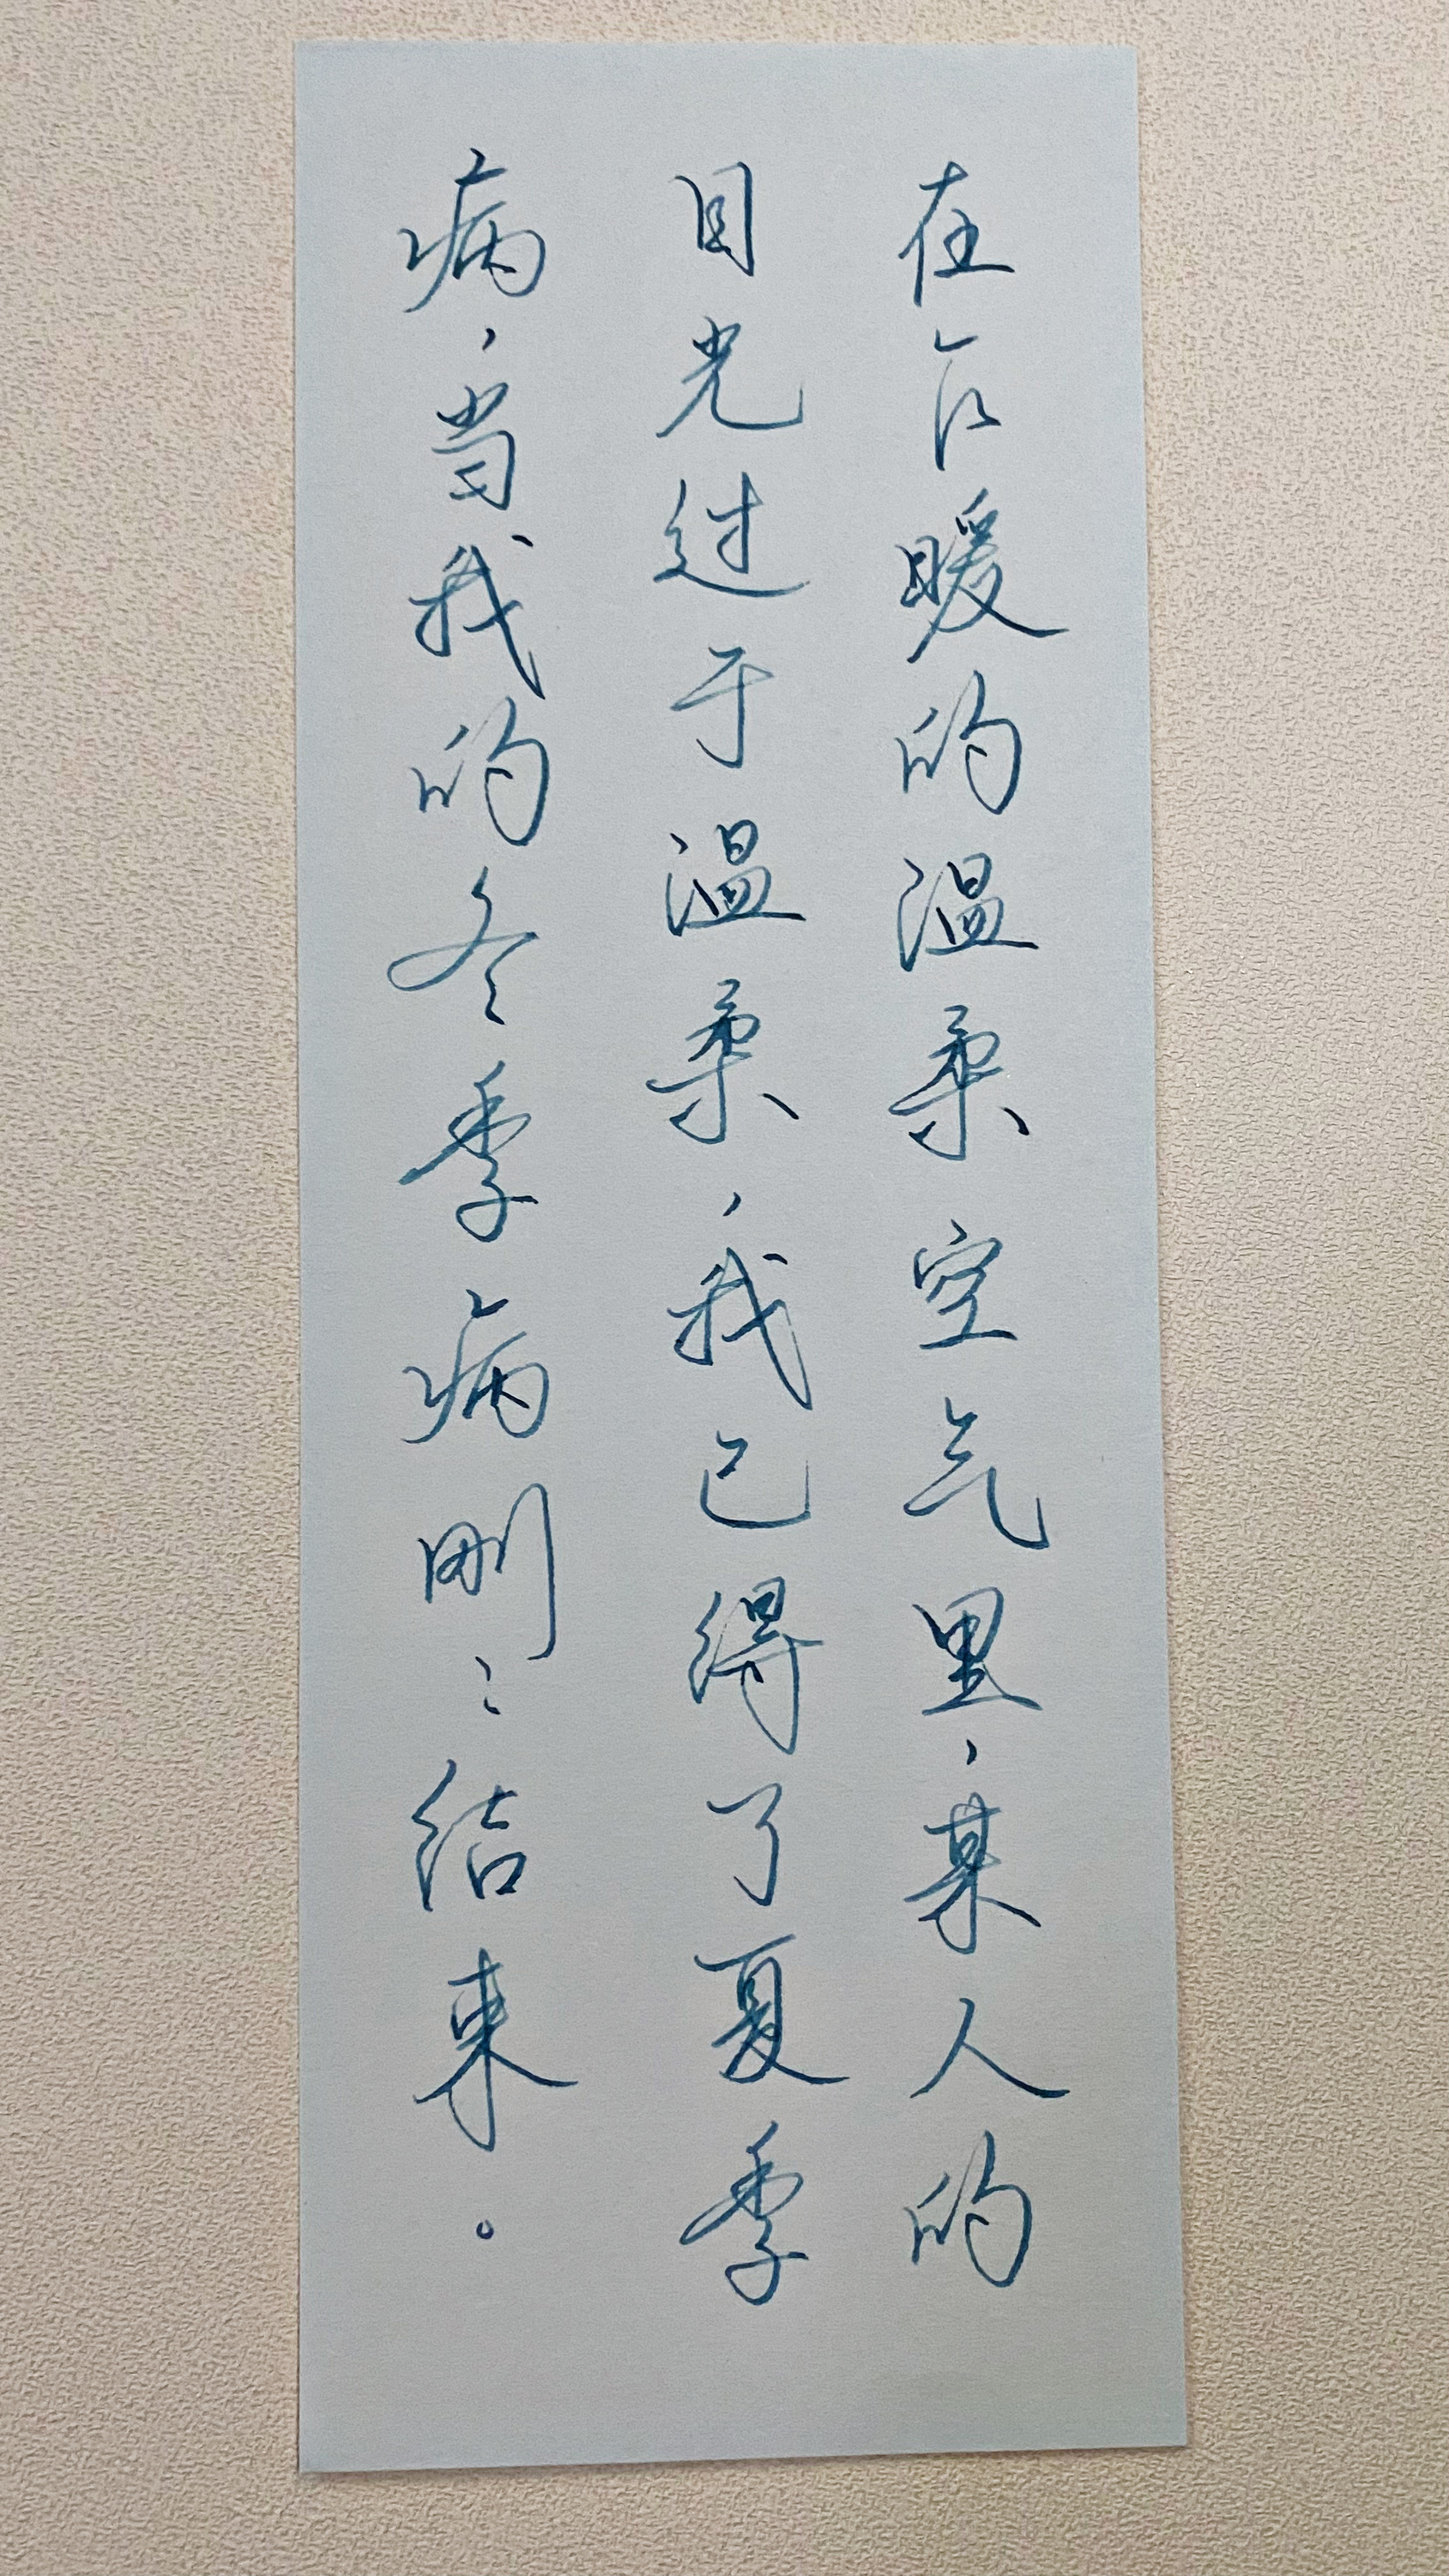 在暖的温柔空气里，某人的
目光过于温柔，我已得了夏季
病，当我的冬季病刚〻结束。